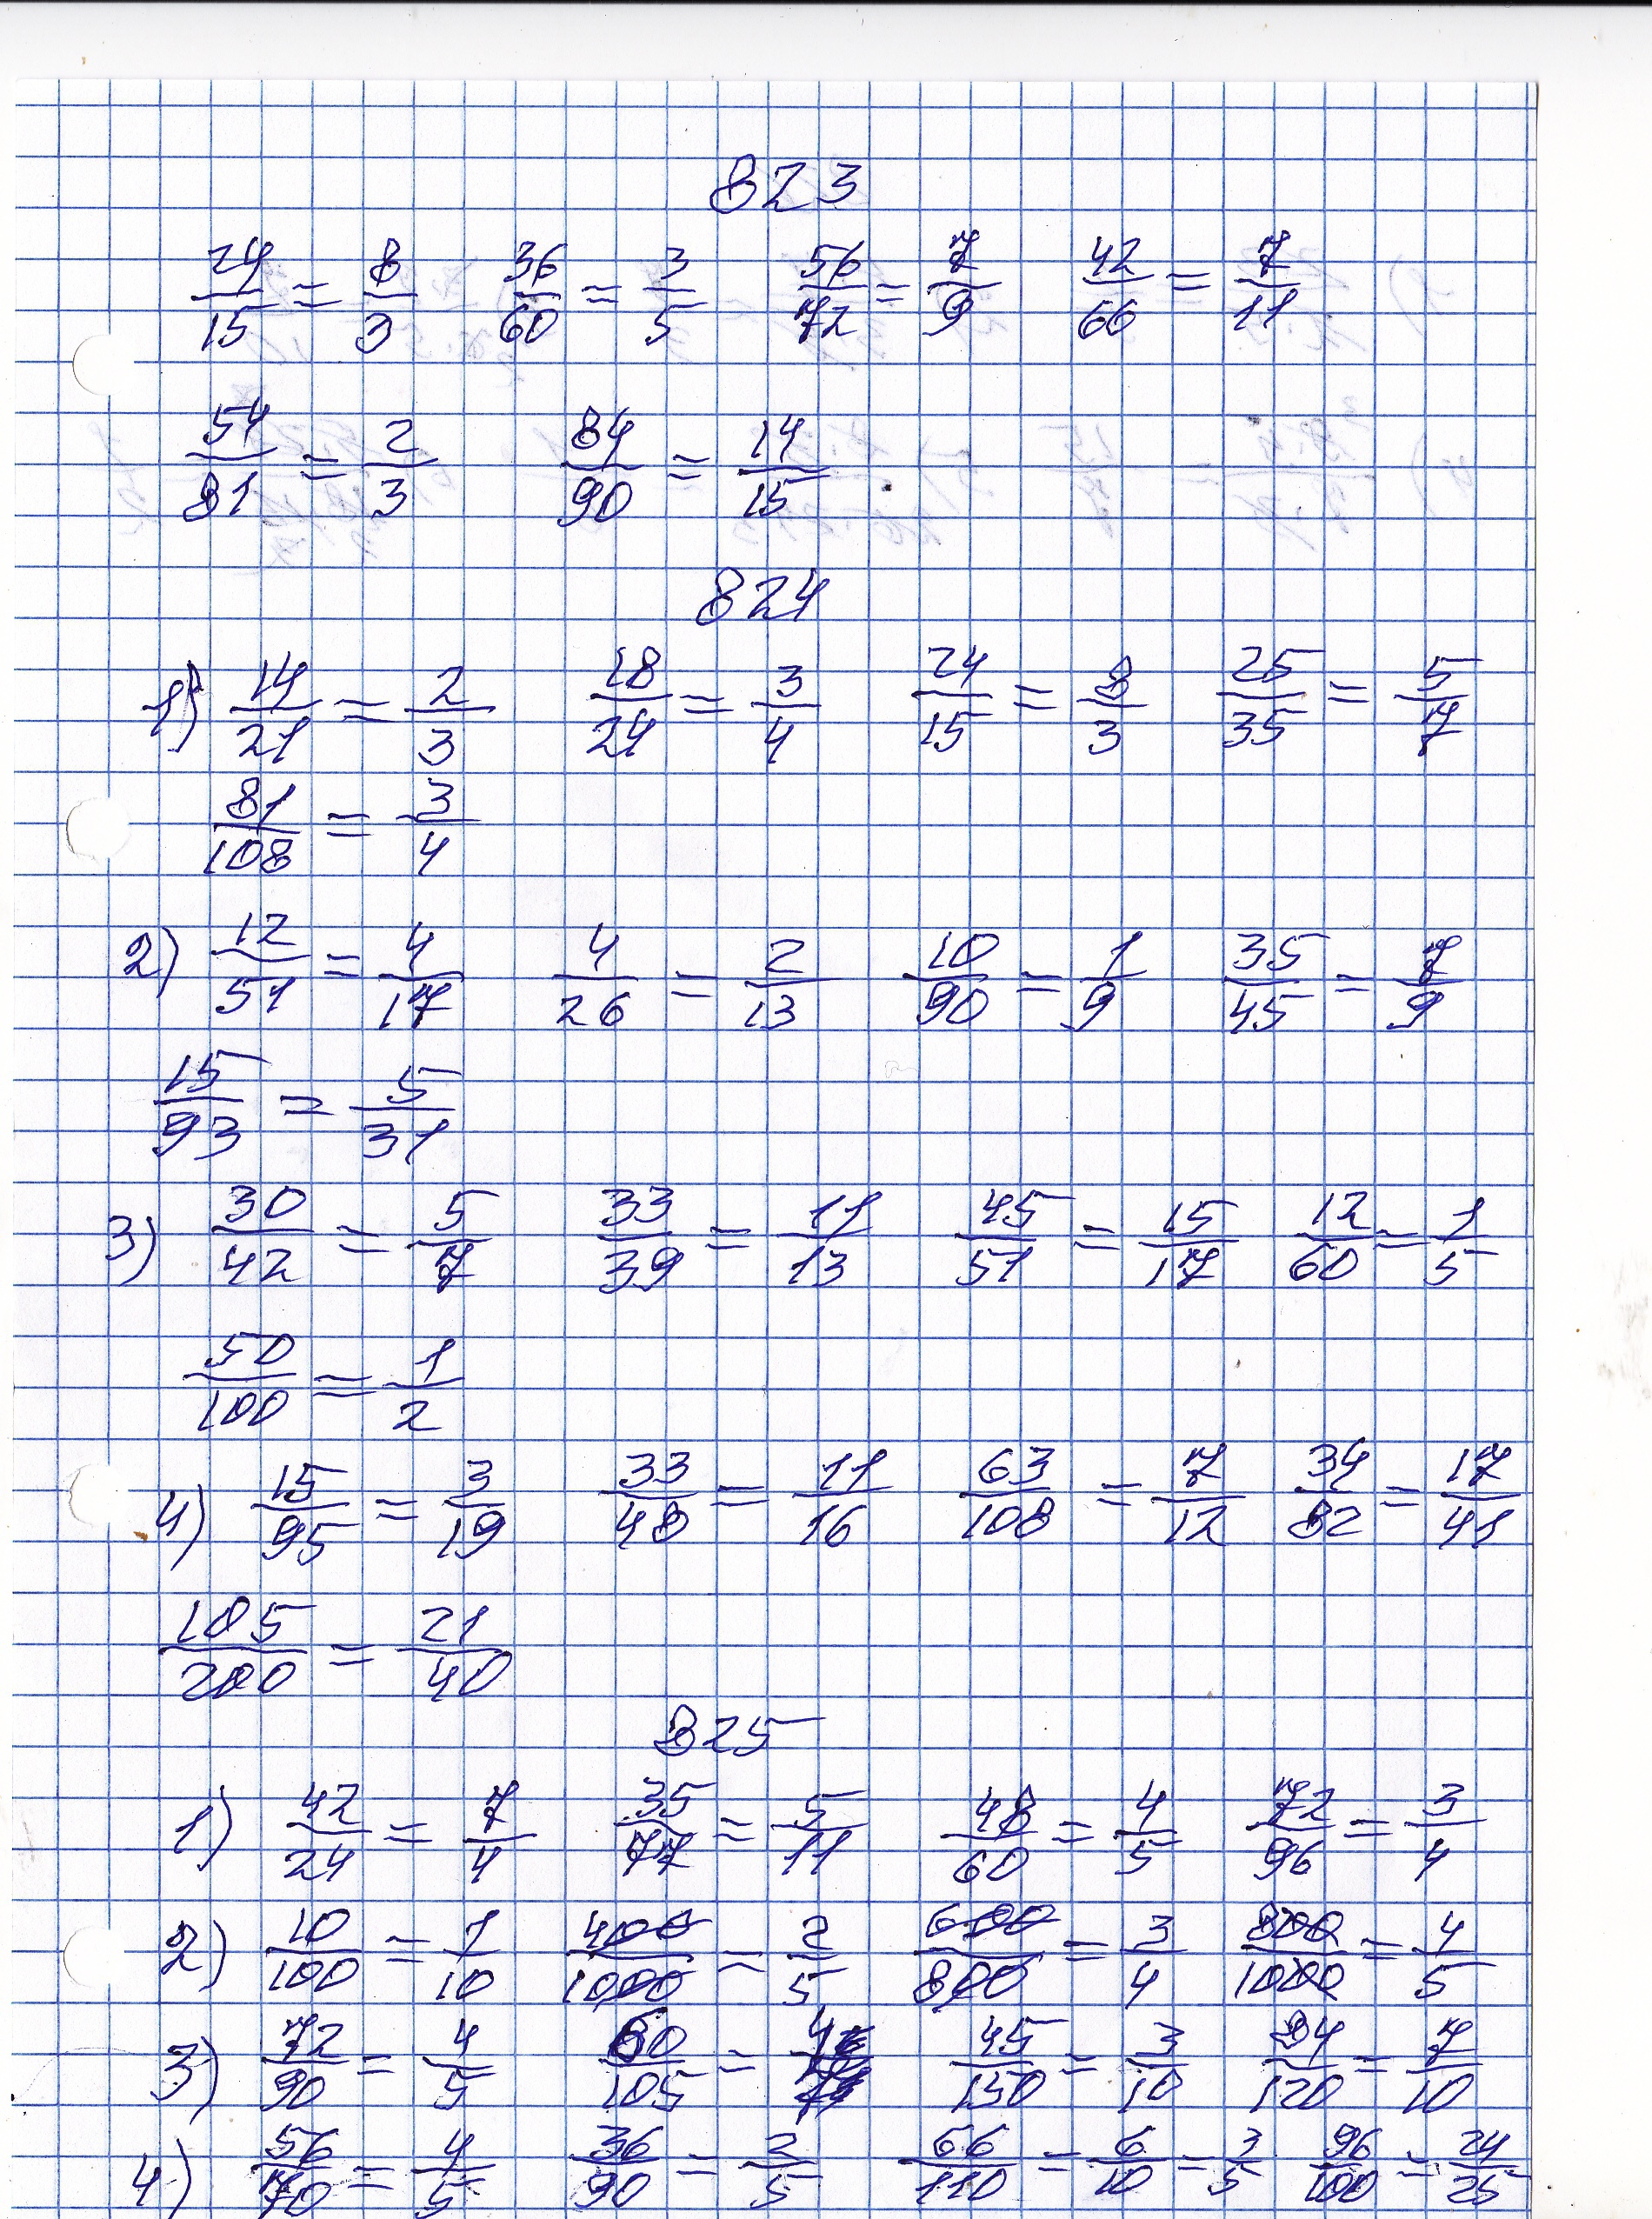 823
24/15 = 8/3 36/60 = 3/5 56/72 = 7/9 42/66 = 7/11
54/81 = 2/3 84/90 = 14/15
824
1) 14/21 = 2/3 18/24 = 3/4 24/15 = 8/3 25/35 = 5/7
81/108 = 3/4
2) 12/51 = 4/17 4/26 = 2/13 10/90 = 1/9 35/45 = 7/9
15/93 = 5/31
3) 30/42 = 5/7 33/39 = 11/13 45/51 = 15/17 12/60 = 1/5
50/100 = 1/2
4) 15/95 = 3/19 33/48 = 11/16 63/108 = 7/12 34/82 = 17/41
105/200 = 21/40
825
1) 42/24 = 7/4 35/77 = 5/11 48/60 = 4/5 72/96 = 3/4
2) 10/100 = 1/10 400/1000 = 2/5 600/800 = 3/4 800/1000 = 4/5
3) 72/90 = 4/5 60/105 = 45/150 = 3/10 84/120 = 7/10
4) 56/70 = 4/5 36/90 = 2/5 66/110 = 6/10 = 3/5 96/100 = 24/25